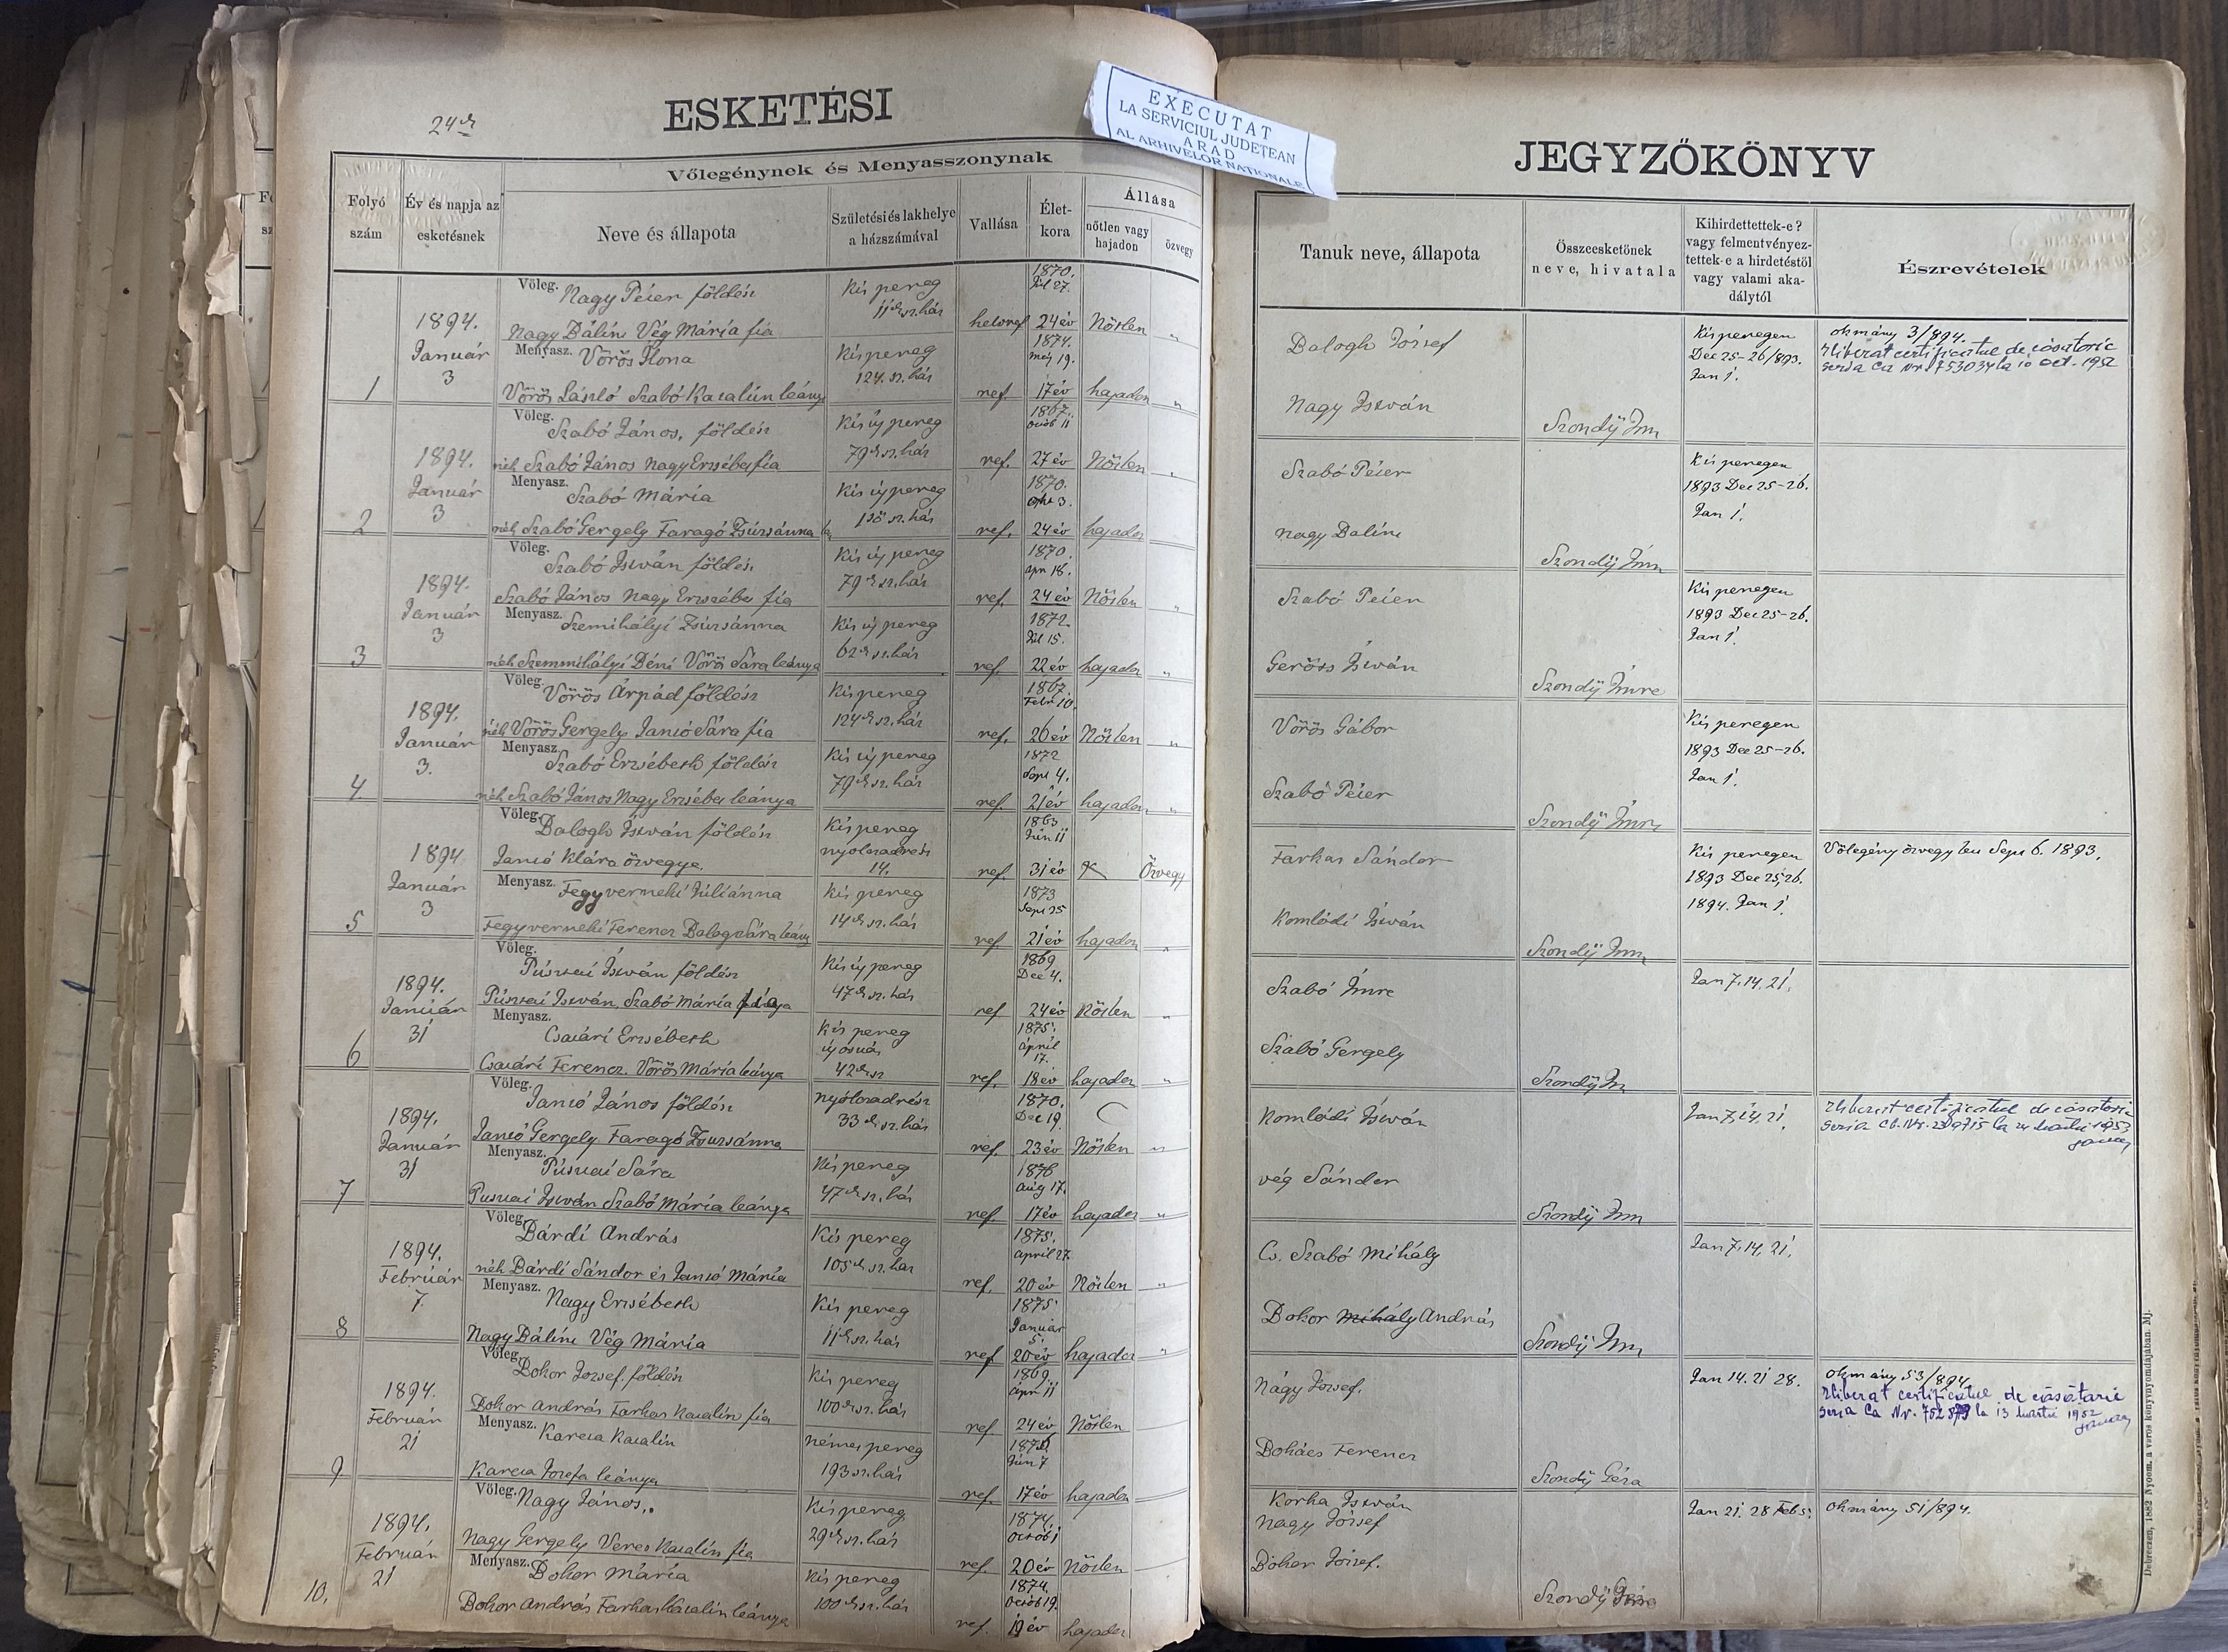 24ik
ESKETÉSI
EXECUTAT
LA SERVICIUL JUDEȚEAN
ARAD
AL ARHIVELOR NATIONALE
JEGYZŐKÖNYV
Folyó szám
Év és napja az esketésnek
Vőlegénynek és Menyasszonynak
Neve és állapota
Születési és lakhelye a házszámával
Vallása
Életkora
Állása
nőtlen vagy hajadon
özvegy
Tanuk neve, állapota
Összeesketőnek neve, hivatala
Kihirdettettek-e? vagy felmentvényeztettek-e a hirdetéstől vagy valami akadálytól
Észrevételek
1
1894. Január 3
Vőleg. Nagy Péter földész
Kis pereg
1870. Júl 27.
Nagy Bálint Vég Mária fia
11ik sz. ház
helv ref
24 év
Nőtlen
Menyasz. Vörös Ilona
Kis pereg
1874. máj 19.
Vörös László Szabó Katalin leánya
124. sz. ház
ref.
17 év
hajadon
Balogh József
Nagy István
Szondÿ Imre
Kis peregen Dec 25-26/893. Jan 1.
okmány 3/894.
Eliberat certificatul de căsătorie
seria Ca Nr. 753034 la 10 Oct. 1952
2
1894. Január 3
Vőleg. Szabó János, földész
Kis új pereg
1867. Octób 11
néh Szabó János Nagy Erzsébet fia
79ik sz. ház
ref.
27 év
Nőtlen
Menyasz. Szabó Mária
Kis új pereg
1870.
néh Szabó Gergely Faragó Zsuzsánna
ref.
24 év
hajadon
Szabó Péter
Nagy Bálint
Szondÿ Imre
Kis peregen 1893 Dec 25-26. Jan 1.
3
1894. Január 3
Vőleg. Szabó István földész
Kis új pereg
1870. apr 18.
Szabó János Nagy Erzsébet fia
79ik sz. ház
ref.
24 év
Nőtlen
Menyasz. Szemihályi Zsuzsánna
Kis új pereg
1872. Júl 15.
néh Szemmihályi Dénes Vörös Sára leánya
62ik sz. ház
ref.
22 év
hajadon
Szabó Péter
Gerőts István
Szondÿ Imre
Kis peregen 1893 Dec 25-26. Jan 1.
4
1894. Január 3.
Vőleg. Vörös Árpád földész
Kis pereg
1867. Febr 10.
néh Vörös Gergely Jantó Sára fia
124ik sz. ház
ref.
26 év
Nőtlen
Menyasz. Szabó Erzsébeth földész
Kis új pereg
1872 Sept 4.
néh Szabó János Nagy Erzsébet leánya
79ik sz. ház
ref.
21 év
hajadon
Vörös Gábor
Szabó Péter
Szondÿ Imre
Kis peregen 1893 Dec 25-26. Jan 1.
5
1894 Január 3
Vőleg. Balogh István földész
Kis pereg
1863 Jún 11
Jantó Klára özvegye.
14.
ref.
31 év
Özvegy
Menyasz. Fegyverneki Júliánna
Kis pereg
1873 Sept 25
Fegyverneki Ferencz Balog Sára leány
14ik sz. ház
ref.
21 év
hajadon
Farkas Sándor
Komlódi István
Szondÿ Imre
Kis peregen 1893 Dec 25,26. 1894. Jan 1.
Vőlegény özvegy lett Sept 6. 1893.
6
1894. Január 31
Vőleg. Pusztai István földész
Kis új pereg
1869 Dec 4.
Pusztai István, Szabó Mária fia
47ik sz. ház
ref
24 év
Nőtlen
Menyasz. Csatári Erzsébeth
Kis pereg
1875. április 17.
Csatári Ferencz. Vörös Mária leánya
42ik sz
ref.
18 év
hajadon
Szabó Imre
Szabó Gergely
Szondÿ Im
Jan 7, 14. 21.
7
1894. Január 31
Vőleg. Jantó János földész
1870. Dec 19.
Jantó Gergely Faragó Zsuzsánna
33ik sz. ház
ref.
23 év
Nőtlen
Menyasz. Pusztai Sára
Kis pereg
1876 Aug 17.
Pusztai István Szabó Mária leánya
47ik sz. ház
ref.
17 év
hajadon
Komlódi István
vég Sándor
Szondÿ Imre
Jan 7, 14, 21.
Eliberat certificatul de căsătorie
8
1894. Február 7.
Vőleg. Bárdi András
Kis pereg
1875. április 27.
néh Bárdi Sándor és Jantó Mária
105ik sz. ház
ref.
20 év
Nőtlen
Menyasz. Nagy Erzsébeth
Kis pereg
1875 Január 5.
Nagy Bálint Vég Mária
11ik sz. ház
ref
20 év
hajadon
Cs. Szabó Mihály
Bokor Mihály András
Szondÿ Imre
Jan 7, 14, 21.
9
1894. Február 21
Vőleg. Bokor József. földész
Kis pereg
1869. Apr 11
Bokor András Farkas Katalin fia
100ik sz. ház
ref.
24 év
Nőtlen
Menyasz. Karcza Katalin
Német pereg
Jún 7
Karcza Jozefa leánya
193 sz. ház
ref.
17 év
hajadon
Nagy József.
Bohács Ferencz
Szondÿ Géza
Jan 14. 21 28.
okmány 53/894.
Eliberat certificatul de căsătorie
10.
1894. Február 21
Vőleg. Nagy János.
Kis pereg
1874. Octób 1
Nagy Gergely Veres Katalin fia
29ik sz. ház
ref.
20 év
Nőtlen
Menyasz. Bokor Mária
Kis pereg
1874. Octób 19.
Bokor András Farkas Katalin leánya
100ik sz. ház
ref.
19 év
hajadon
Korha István
Nagy József
Bokor József.
Szondÿ Géza
Jan 21. 28 Feb 5.
okmány 51/894.
Debreczen, 1882 Nyom. a város könyvnyomdájában.